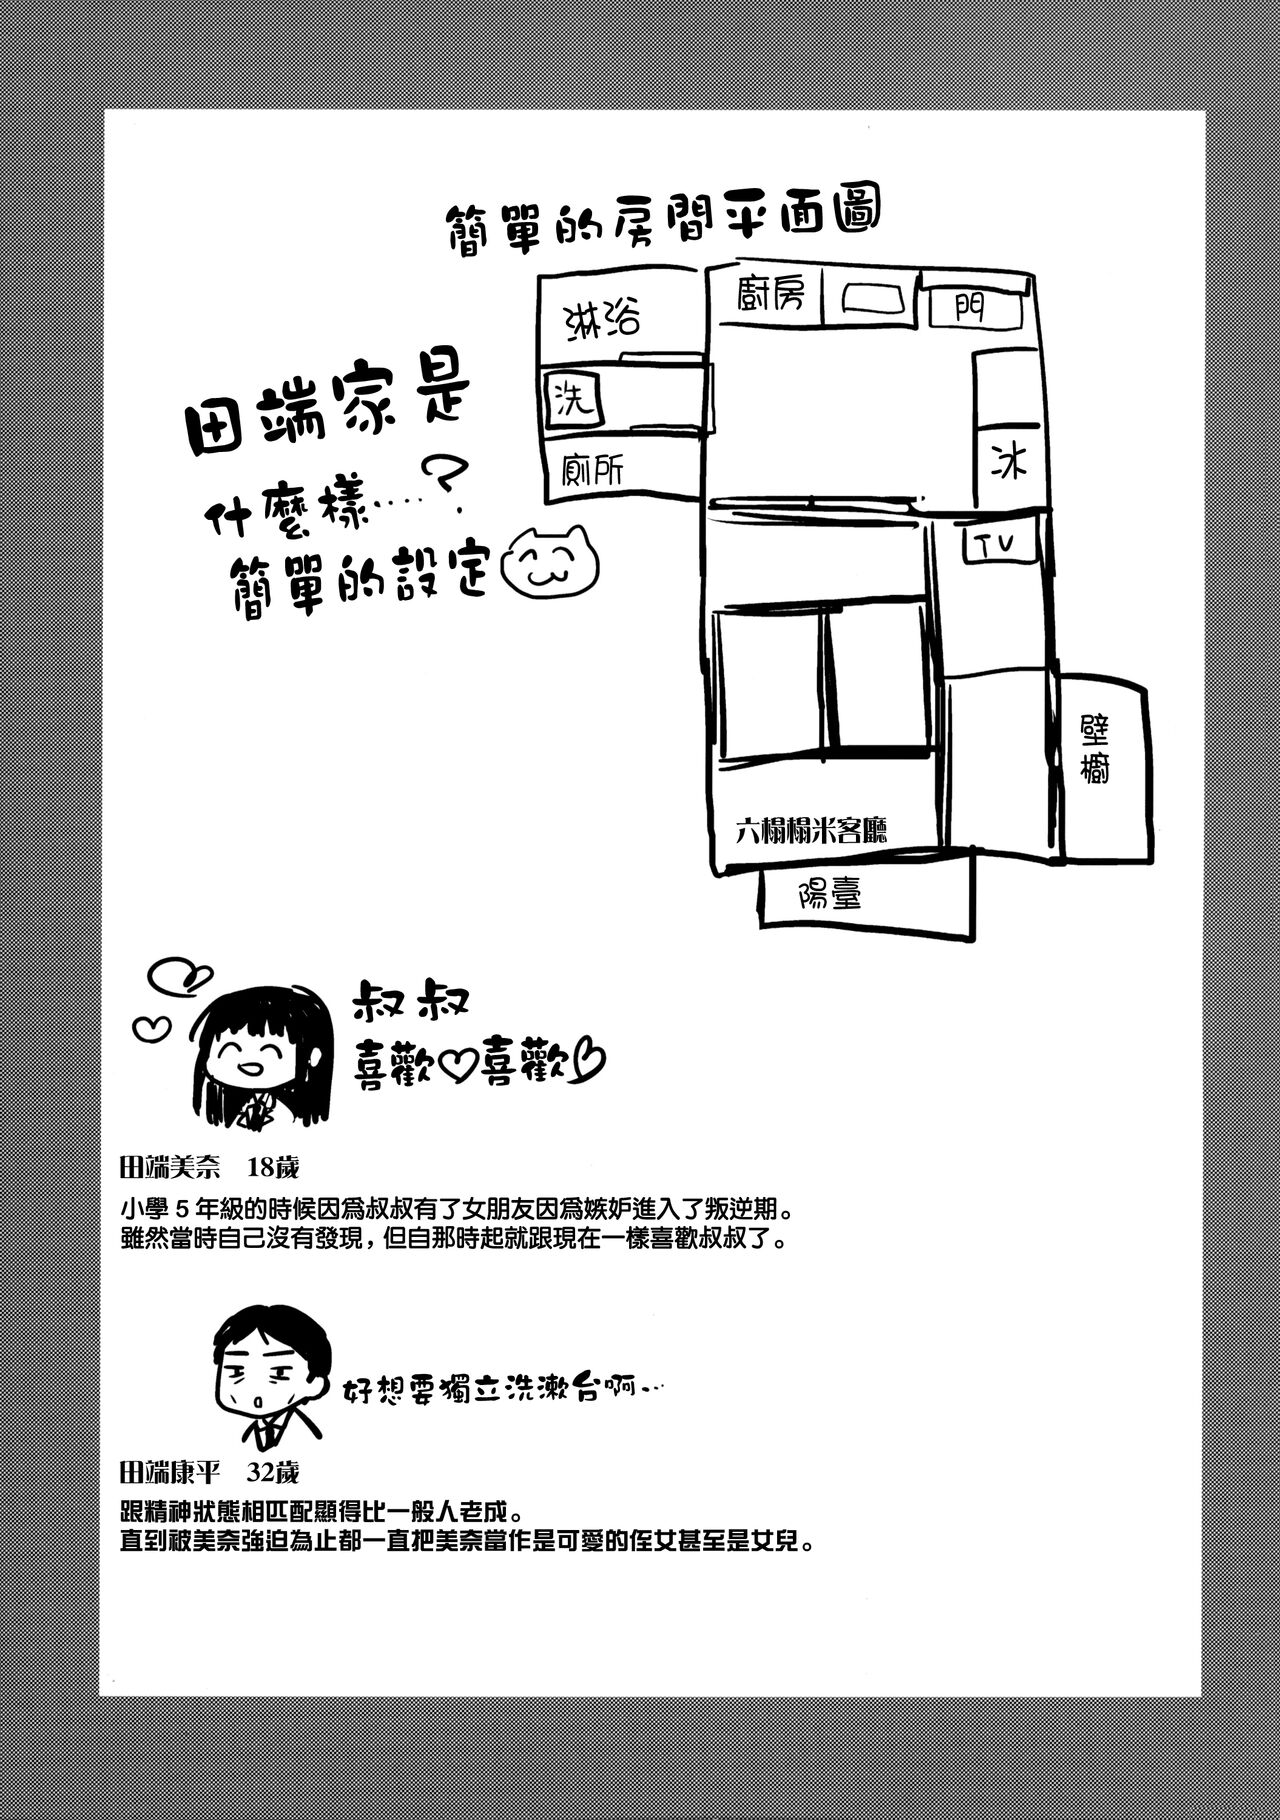 簡單的房間平面圖
淋浴
廚房
門
洗
冰
廁所
TV
田端家是
什麼樣‥‥?
簡單的設定
壁櫥
六榻榻米客廳
陽臺
叔叔
喜歡♡喜歡♡
田端美奈 18歲
小學5年級的時候因為叔叔有了女朋友因為嫉妒進入了叛逆期。
雖然當時自己沒有發現，但自那時起就跟現在一樣喜歡叔叔了。
好想要獨立洗漱台啊…
田端康平 32歲
跟精神狀態相匹配顯得比一般人老成。
直到被美奈強迫為止都一直把美奈當作是可愛的侄女甚至是女兒。